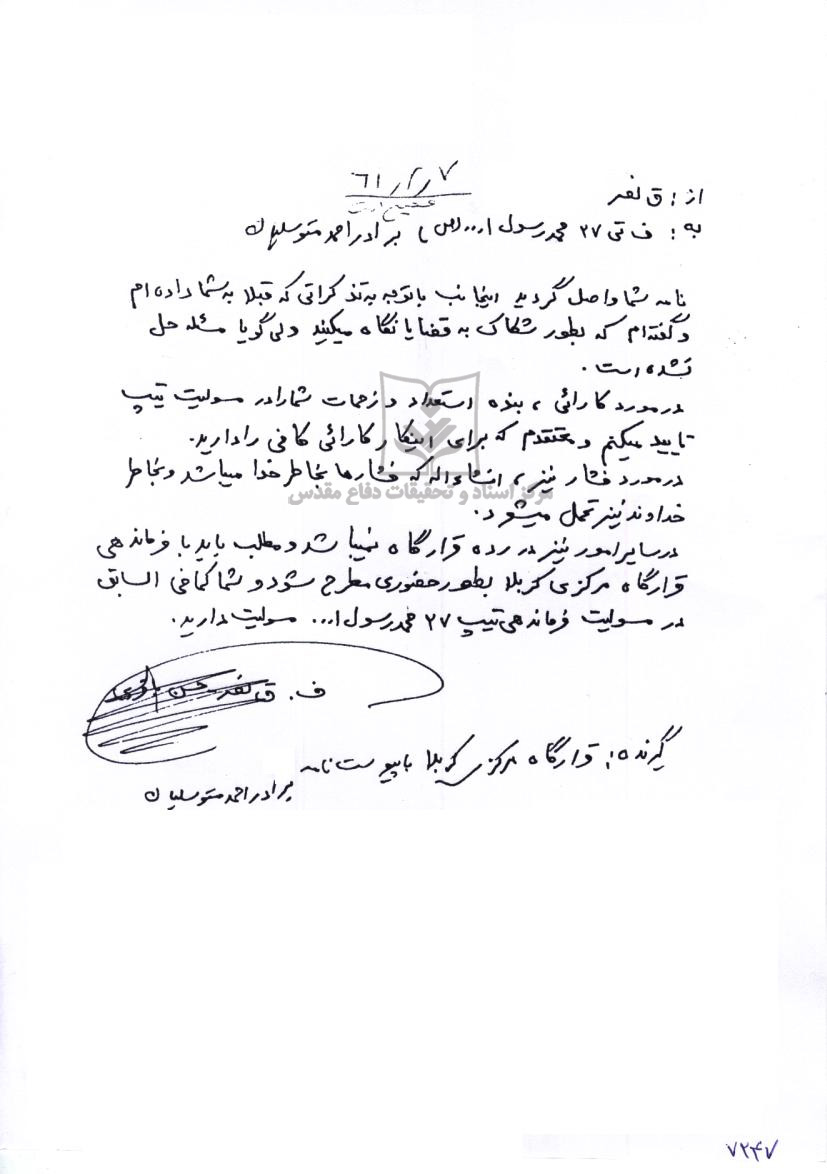 ۶۱/۲/۷
از: ق نصر
به: ف تی ۲۷ محمد رسول ا... (ص) برادر احمد متوسلیان
نامه شما واصل گردید اینجانب باتوجه به تذکراتی که قبلا به شما داده ام
و گفته ام که بطور شکاک به قضایا نگاه میکنید ولی گویا مسئله حل
نشده است.
در مورد کارائی، بنده استعداد و زحمات شما را در مسولیت تیپ
تایید میکنم و معتقدم که برای اینکار کارائی کافی را دارید.
در مورد فشار نیز، انشاءاله که فشارها بخاطر خدا میباشد و بخاطر
مرکز اسناد و تحقیقات دفاع مقدس
خداوند نیز تحمل میشود.
در سایر امور نیز در رده قرارگاه نمیباشد و مطلب باید با فرماندهی
قرارگاه مرکزی کربلا بطور حضوری مطرح شود و شما کمافی السابق
در مسولیت فرماندهی تیپ ۲۷ محمد رسول ا... مسولیت دارید.
ف. ق نصر حسن باقری
گیرنده: قرارگاه مرکزی کربلا باپیوست نامه
برادر احمد متوسلیان
۷۲۴۷